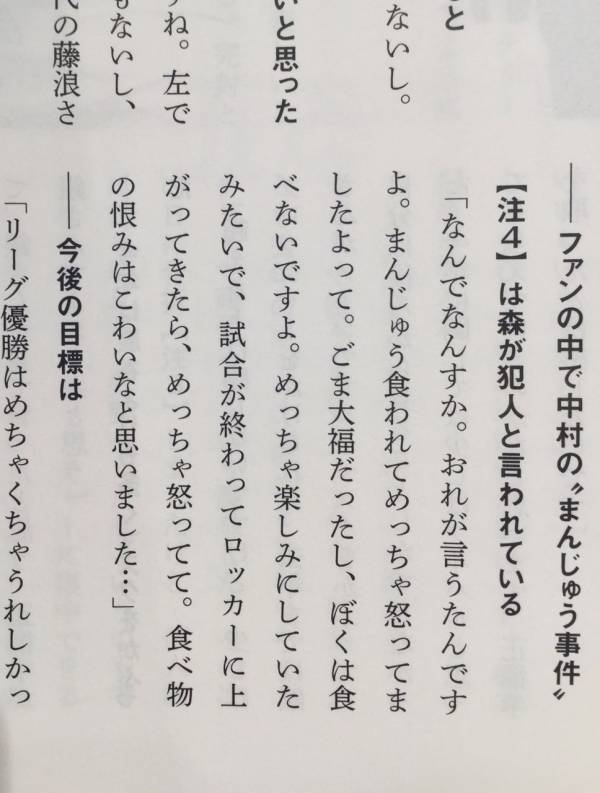 と
ないし。
いと思った
すね。左で
もないし、
代の藤浪さ
――ファンの中で中村の〝まんじゅう事件〟
【注４】は森が犯人と言われている
「なんでなんすか。おれが言うたんです
よ。まんじゅう食われてめっちゃ怒ってま
したよって。ごま大福だったし、ぼくは食
べないですよ。めっちゃ楽しみにしていた
みたいで、試合が終わってロッカーに上
がってきたら、めっちゃ怒ってて。食べ物
の恨みはこわいなと思いました…」
――今後の目標は
「リーグ優勝はめちゃくちゃうれしかっ